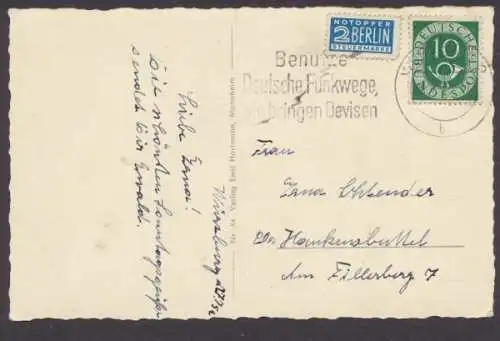 Liebe Erna!
Die schönsten Sonntagsgrüße
sendet Dir Ewald.
Würzburg
Nr. 84 Verlag Emil Hartmann, Mannheim
NOTOPFER
2 BERLIN
STEUERMARKE
DEUTSCHE
10
BUNDESPOST
Benutze
Deutsche Funkwege,
sie bringen Devisen
b
Frau
Erna
Hankensbüttel
Am Fillerberg 7